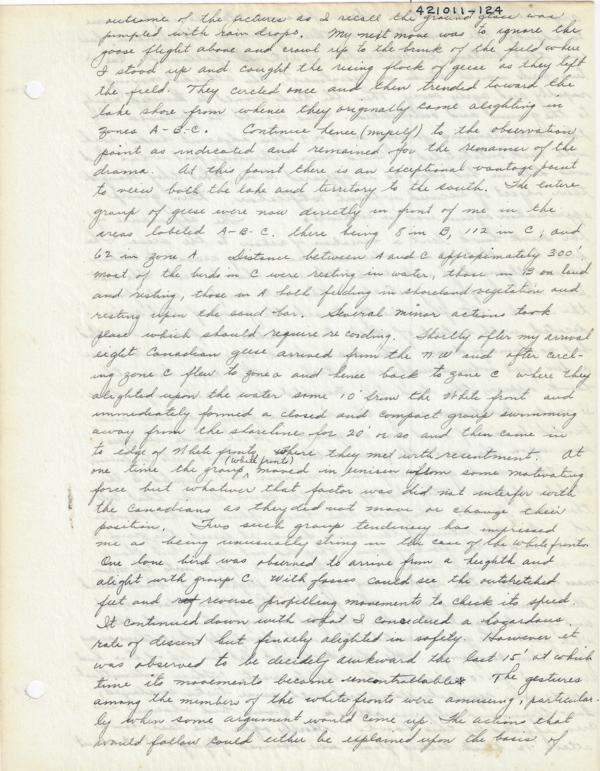 421011-124
outcome of the pictures as I recall the ground glass was
pumpled with rain drops. My next move was to ignore the
goose flight above and crawl up to the brink of the field where
I stood up and caught the rising flock of geese as they left
the field. They circled once and then trended toward the
lake shore from whence they originally came alighting in
zones A-B-C. Continue hence (myself) to the observation
point as indicated and remained for the remainer of the
drama. At this point there is an exceptional vantage point
to view both the lake and territory to the south. The entire
group of geese were now directly in front of me in the
areas labeled A-B-C. there being 8 in B, 112 in C; and
62 in zone A. Distance between A and C approximately 300'.
Most of the birds in C were resting in water, those in B on land
and resting, those in A both feeding in shoreland vegetation and
resting upon the sand bar. Several minor actions took
place which should require recording. Shortly after my arrival
eight Canadian geese arrived from the NW and after circl-
ing zone C flew to zone a and hence back to zone C where they
alighted upon the water some 10' from the White front and
immediately formed a closed and compact group swimming
away from the shoreline for 20' or so and then came in
to edge of White fronts, where they met with resentment. At
one time the group (white fronts) moved in unison some motivating
force but whatever that factor was did not interfer with
the Canadians as they did not move or change their
position. This such group tendency has impressed
me as being unusually string in the case of the White fronts.
One lone bird was observed to arrive from a heighth and
alight with group C. With glasses could see the outstretched
feet and reverse propelling movements to check its speed.
It continued down with what I considered a hazardous
rate of descent but finally alighted in safety. However it
was observed to be decidely awkward the last 15' at which
time its movements became uncontrollable. The gestures
among the members of the white fronts were amusing, particular-
ly when some argument would come up. The actions that
would follow could either be explained upon the basis of